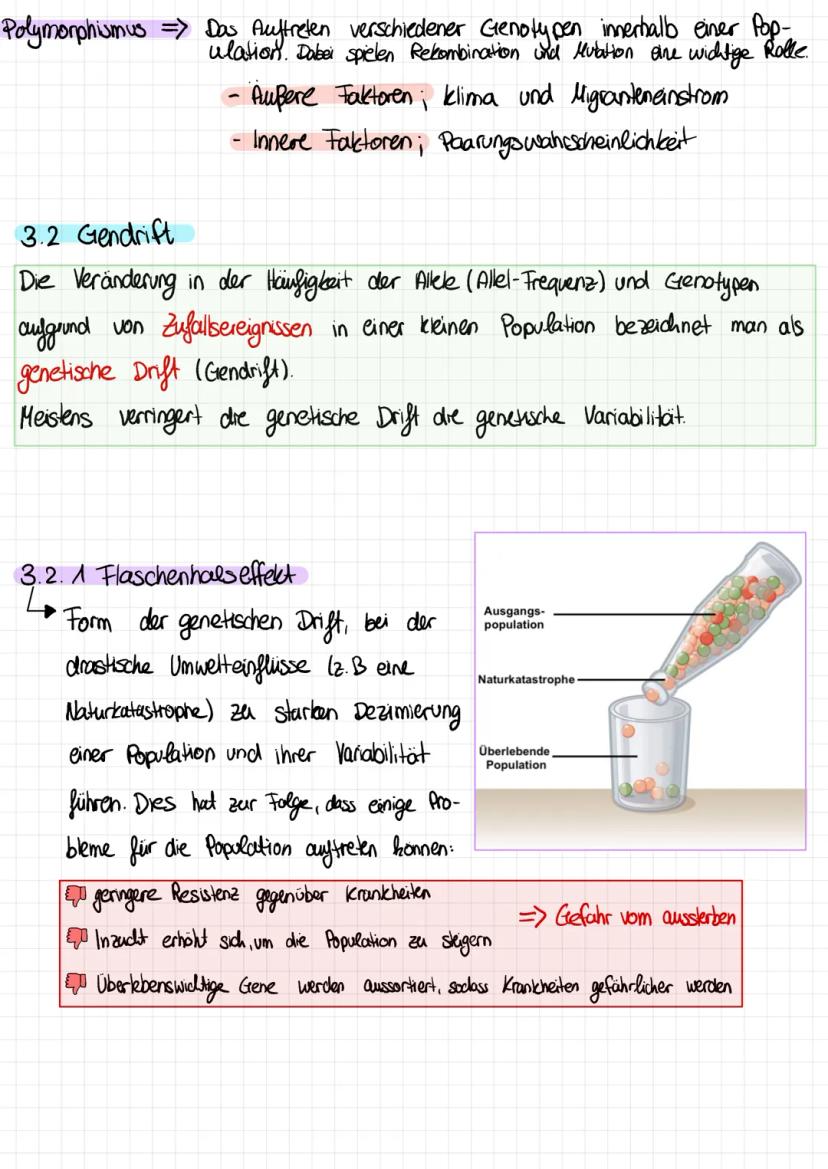 Polymorphismus => Das Auftreten verschiedener Genotypen innerhalb einer Pop-
ulation. Dabei spielen Rekombination und Mutation eine wichtige Rolle.
- Äußere Faktoren; Klima und Migranteneinstrom
- Innere Faktoren; Paarungswahrscheinlichkeit
3.2 Gendrift
Die Veränderung in der Häufigkeit der Allele (Allel-Frequenz) und Genotypen
aufgrund von Zufallsereignissen in einer kleinen Population bezeichnet man als
genetische Drift (Gendrift).
Meistens verringert die genetische Drift die genetische Variabilität.
3.2.1 Flaschenhalseffekt
Form der genetischen Drift, bei der
drastische Umwelteinflüsse (z.B eine
Naturkatastrophe) zu starken Dezimierung
einer Population und ihrer Variabilität
führen. Dies hat zur Folge, dass einige Pro-
bleme für die Population auftreten können:
Ausgangs-
population
Naturkatastrophe
Überlebende
Population
geringere Resistenz gegenüber Krankheiten
=> Gefahr vom aussterben
Inzucht erhöht sich, um die Population zu steigern
Überlebenswichtige Gene werden aussortiert, sodass Krankheiten gefährlicher werden